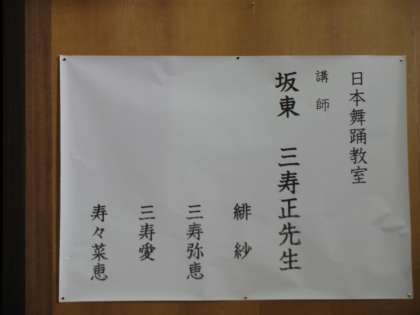 日本舞踊教室
講師
坂東 三寿正先生
緋紗
三寿弥恵
三寿愛
寿々菜恵